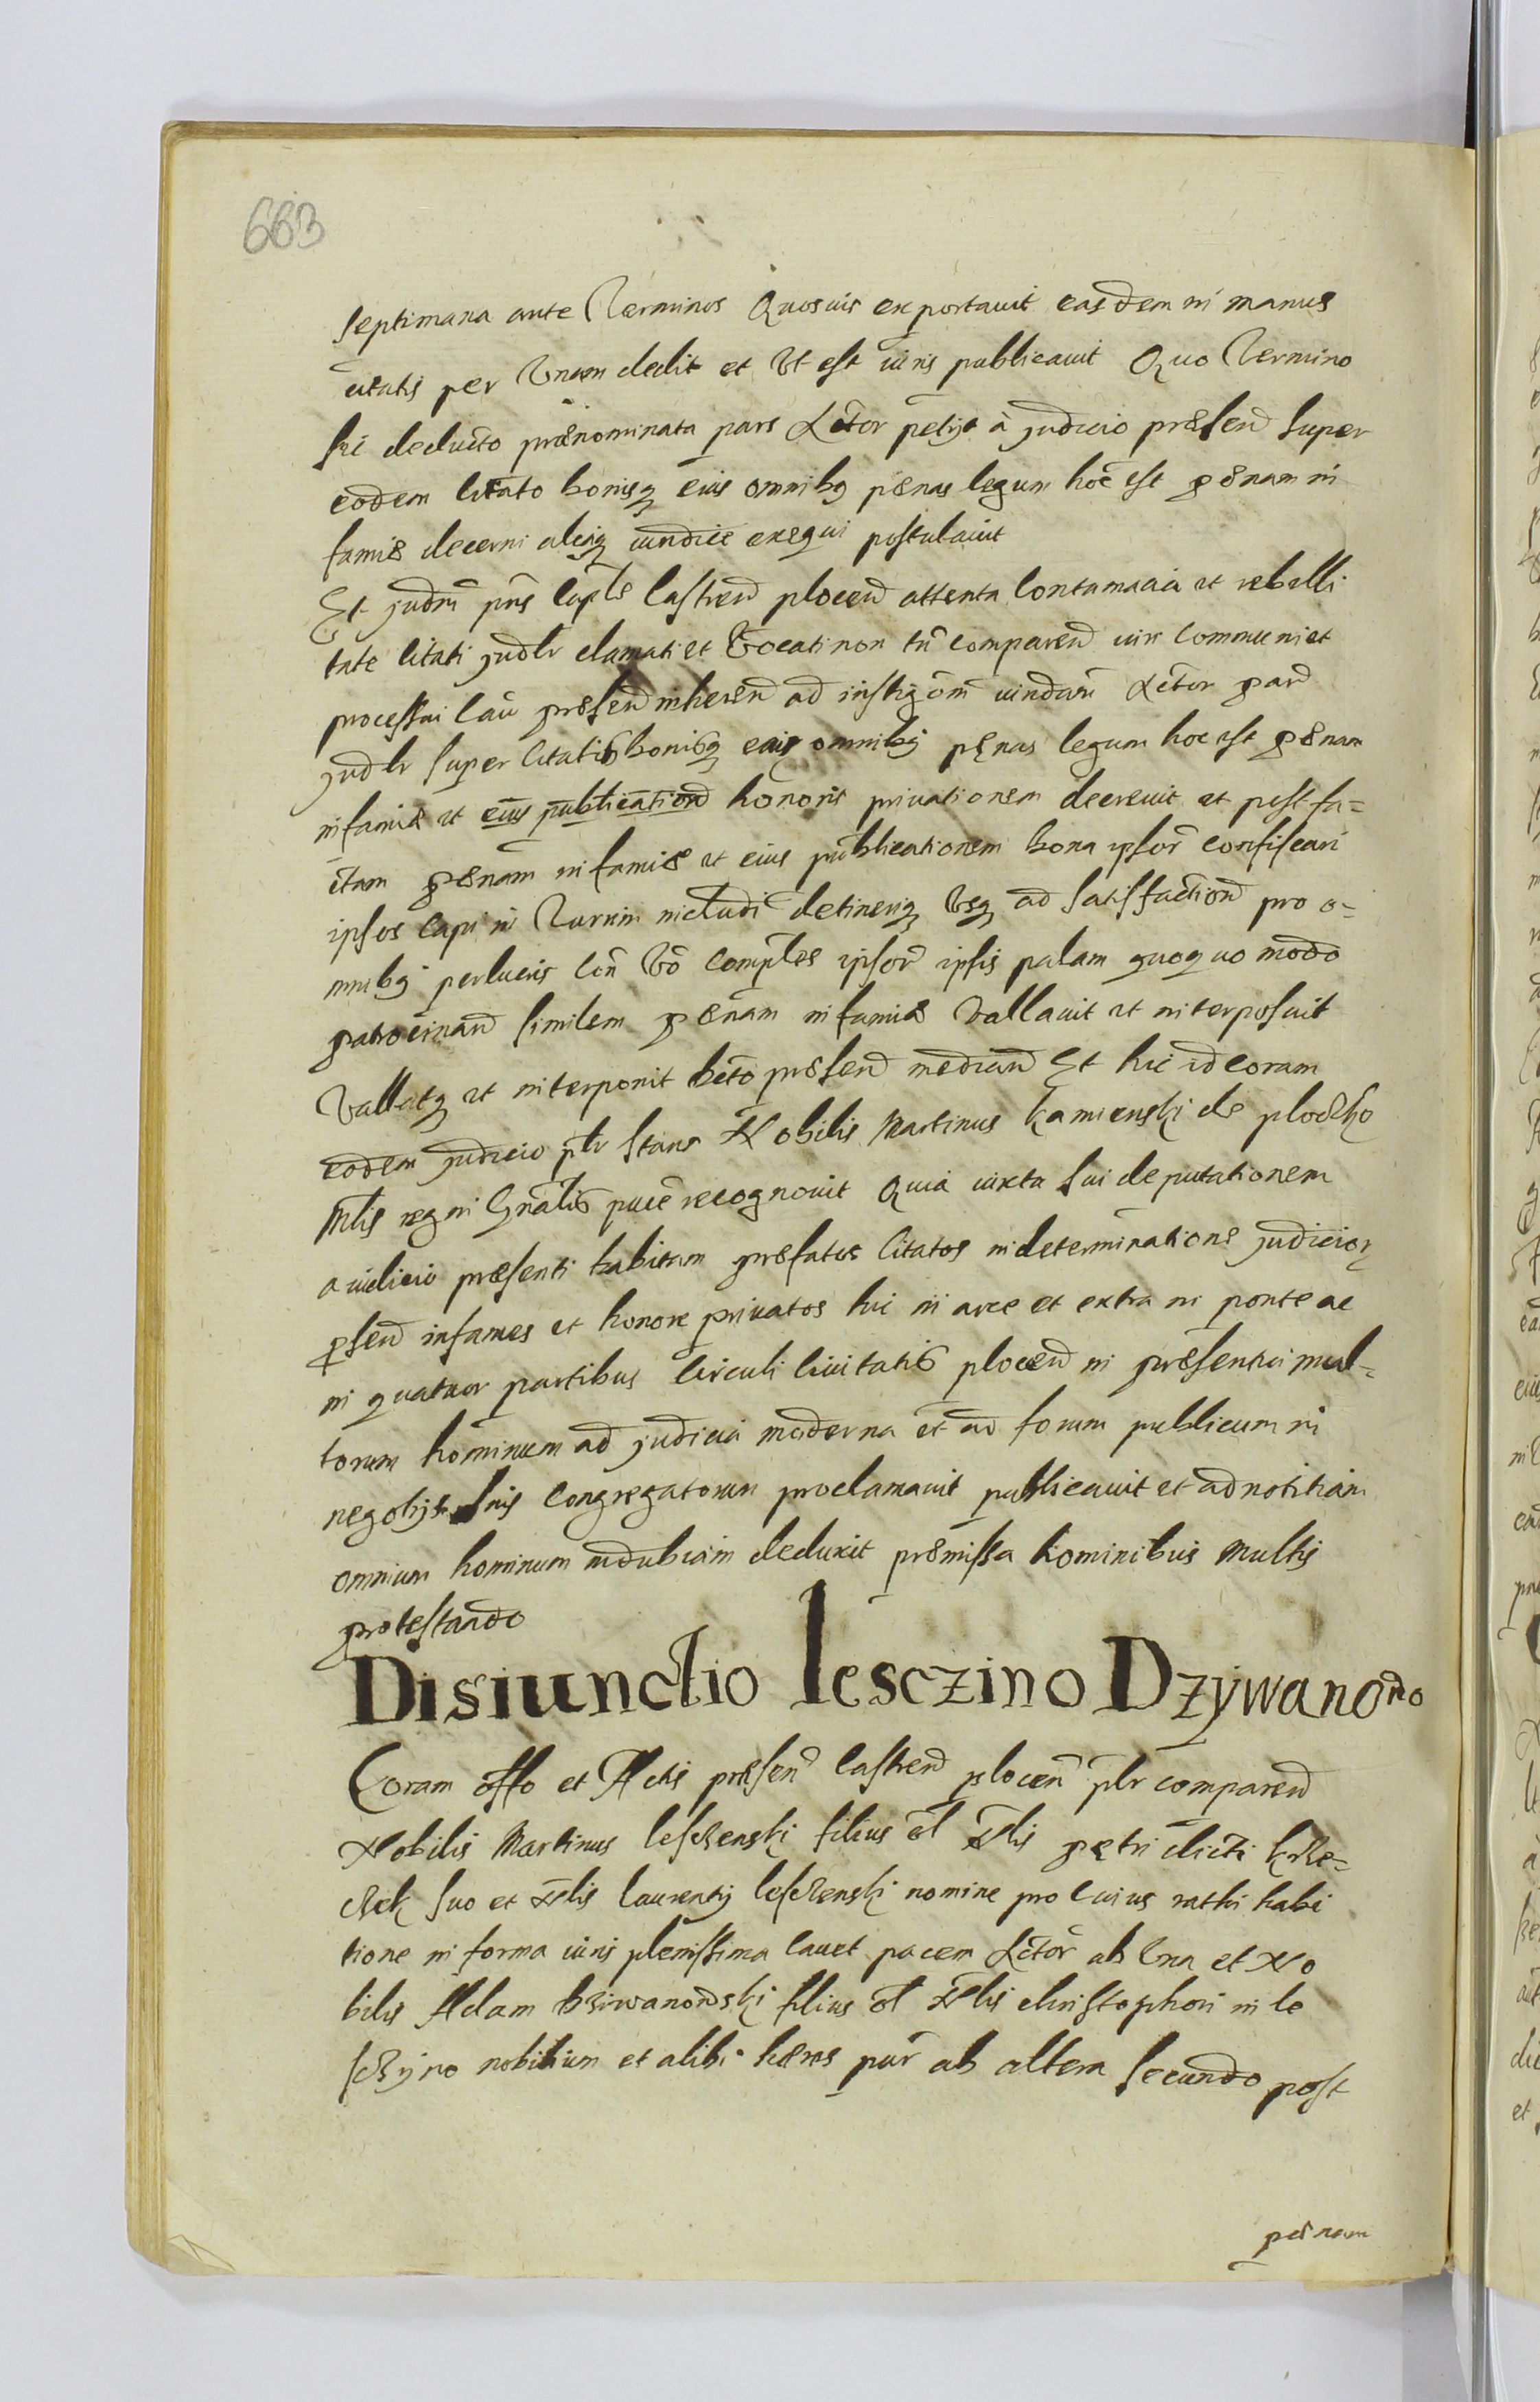 663
septimana ante Terminos Quosuis exportauit easdem in manus
citatis per Vnam dedit et Vt est iuris publicauit Quo Termino
sic deducto prænominata pars Actor petijt a judicio præsen super
eodem Citato bonisq eius omnibq pænas legum hoc est pænam in
famiæ decerni aliasq iuridice exequi postulauit
Et judm pns Caple Castren plocen attenta Contumacia et rebelli
tate Citati judlr clamati et Vocati non tn comparen iure communi et
processui Cau præsen inheren ad instigom iuridam Actor par
judlr super Citatis bonisq eius omnibq pænas legum hoc est pænam
infamiæ et eius publication honoris priuationem decreuit et post fa-
ctam pænam infamiæ et eius publicationem bona ipsor confiscari
ipsos Capi in Turrim includi detineriq Vsq ad satisfaction pro o-
mnibq perlucris Con Vo Complces ipsor ipsis palam quoquo modo
patrocinan similem pænam infamiæ Vallauit et interposuit
Vallatq et interponit decto præsen median Et hic id coram
eodem judicio plr stans Nobilis Martinus Kamienski de ploczko
Mlis regni Gnalis puce recognouit Quia iuxta sui deputationem
a iudicio præsenti habitam præfatos Citatos in determinatione judicior
psen infames et honore priuatos hic in arce et extra in ponte ac
in quatuor partibus Circuli Ciuitatis plocen in præsentia mul-
torum hominum ad judicia moderna et ad forum publicum in
negotijs suis Congregatorum proclamauit publicauit et ad notitiam
omnium hominum indubiam deduxit præmissa hominibus multis
protestando
Disiunctio lesczino Dzywanono
Coram offo et Actis præsen Castren plocen plr comparen
Nobilis Martinus lesczenski filius ol Nlis petri dicti krze-
czek suo et Nlis laurentij lesczenski nomine pro Cuius rathi habi
tione in forma iuris plenissima Cauet pacem Actor ab Vna et No
bilis Adam dziwanowski filius ol Nlis christophori in le
sczyno nobilium et alibi hæres par ab altera secundo post
pænam